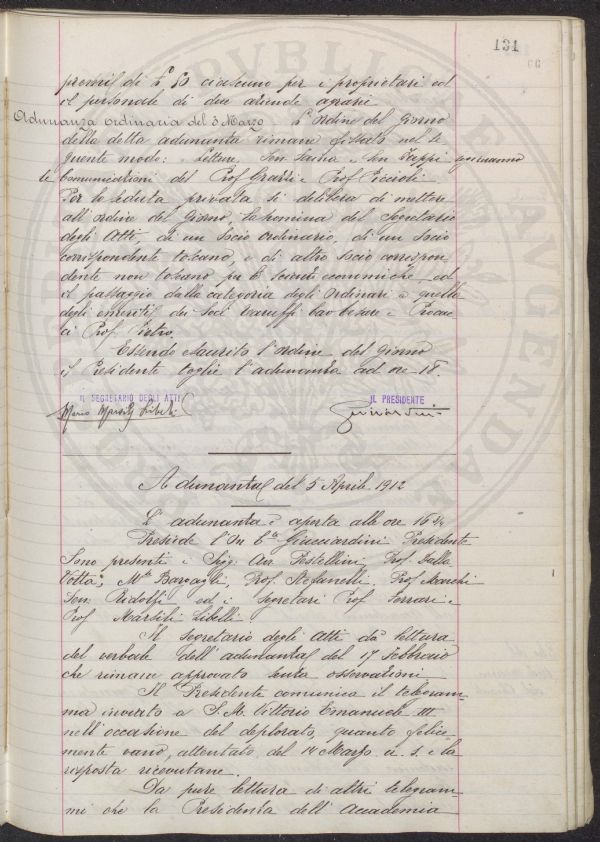 131
premii di £ 50 ciascuno per i proprietari ed
il personale di due aziende agrarie
Adunanza ordinaria del 3 Marzo L'ordine del giorno
della detta adunanza rimane fissato nel se
guente modo: Letture, Sen Faina e Sen
le Comunicazioni del Prof Grazzi e Prof Piccioli.
Per la seduta privata si delibera di mettere
all'ordine del giorno, la nomina del Segretario
degli Atti, di un socio ordinario, di un socio
corrispondente toscano, e di altro socio corrispon
dente non toscano per le scienze economiche ed
il passaggio dalla categoria degli Ordinari a quella
degli emeriti dei Soci
ci Prof. Pietro.
Essendo esaurito l'ordine del giorno
il Presidente toglie l'adunanza ad ore 18.
IL SEGRETARIO DEGLI ATTI
IL PRESIDENTE
Mario Marsili Libelli
Guicciardini
Adunanza del 5 Aprile 1912
L'adunanza è aperta alle ore 16 3/4
Presiede l'On Guicciardini Presidente
Sono presenti i Sig. Avv. Pestellini, Prof. Dalla
Volta, Mse Bargagli, Prof. Stefanelli, Prof. Marchi
Sen. Ridolfi ed i Segretari Prof Ferrari e
Prof Marsili Libelli
Il Segretario degli Atti dà lettura
del verbale dell'adunanza del 17 Febbraio
che rimane approvato senza osservazioni.
Il Presidente comunica il telegram-
ma inviato a S. M. Vittorio Emanuele III
nell'occasione del deplorato, quanto felice
mente vano, attentato del 14 Marzo u. s. e la
risposta ricevutane.
Da pure lettura di altri telegram-
mi che la Presidenza dell'Accademia